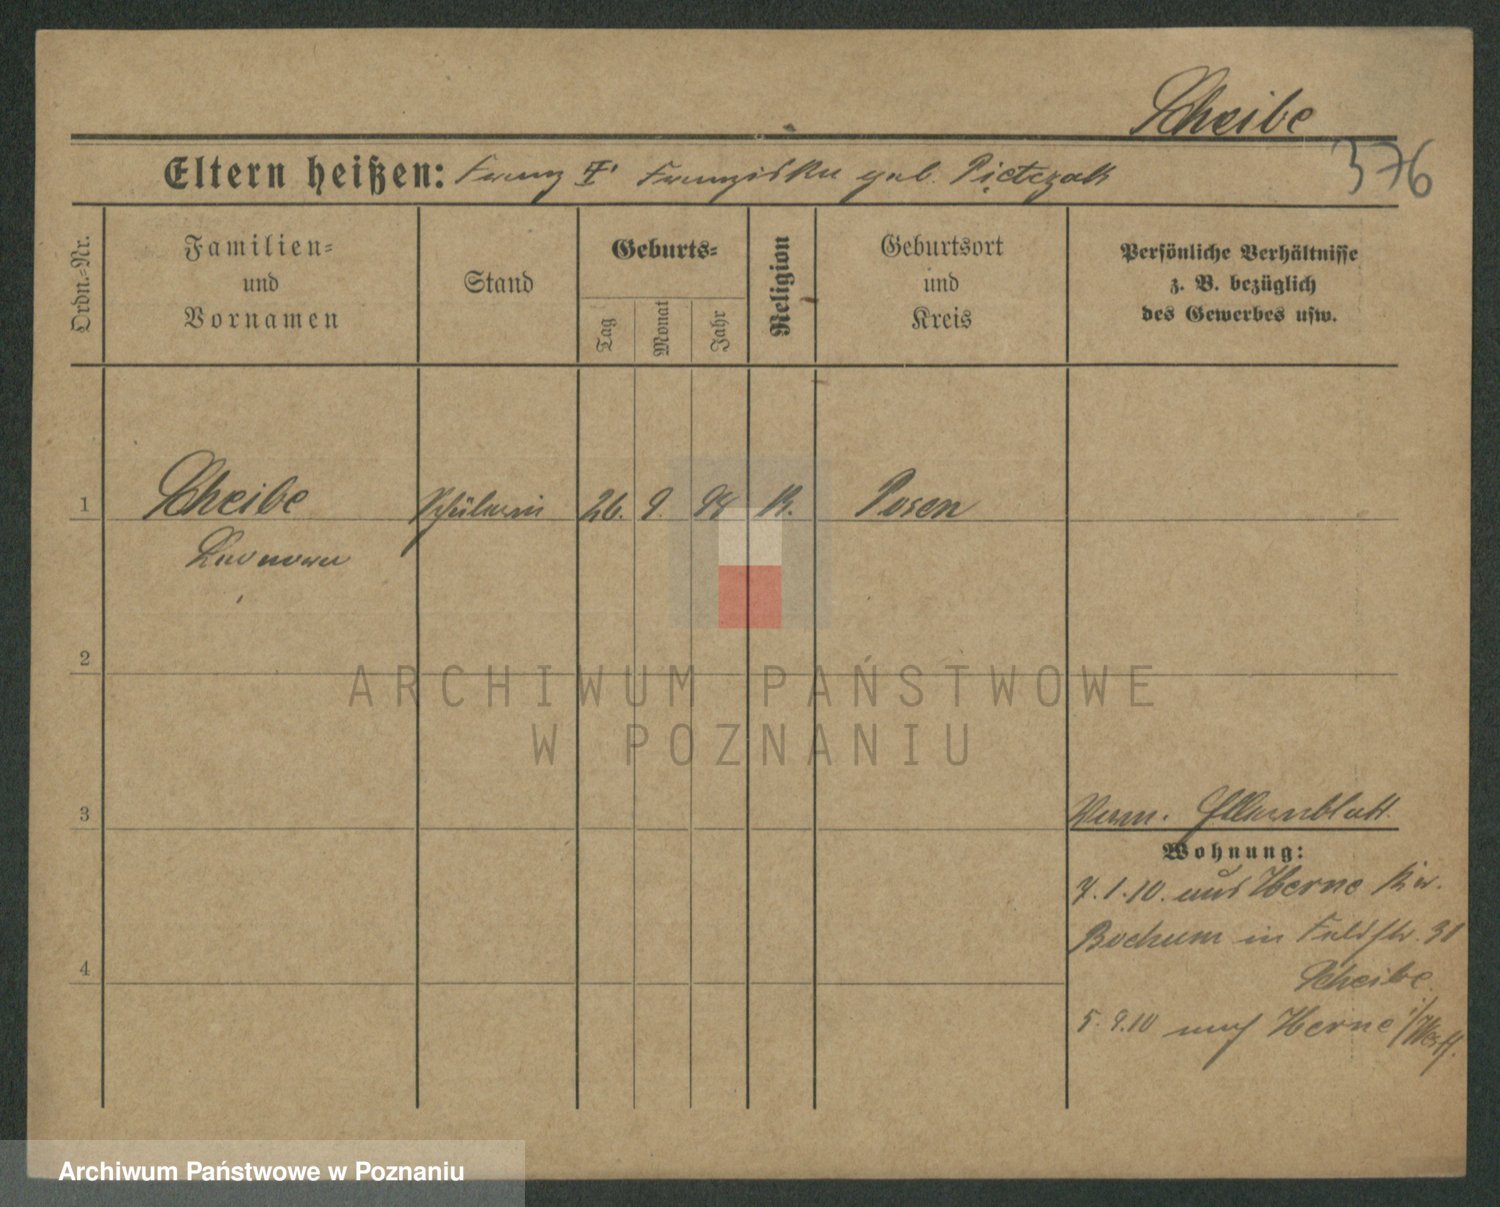 Scheibe
376
Eltern heißen: Franz Franziska geb. Pietczak
Ordn.=Nr.
Familien=
und
Vornamen
Stand
Geburts=
Tag
Monat
Jahr
Religion
Geburtsort
und
Kreis
Persönliche Verhältnisse
z. B. bezüglich
des Gewerbes usw.
1 Scheibe Schülerin 26. 9. 98 K. Posen
2
3
Verm. Elternblatt
Wohnung:
7.1.10. aus Herne Kr.
Bochum in Feldstr. 31
Scheibe
4
5.9.10 nach Herne i/Westf.
ARCHIWUM PAŃSTWOWE
W POZNANIU
Archiwum Państwowe w Poznaniu